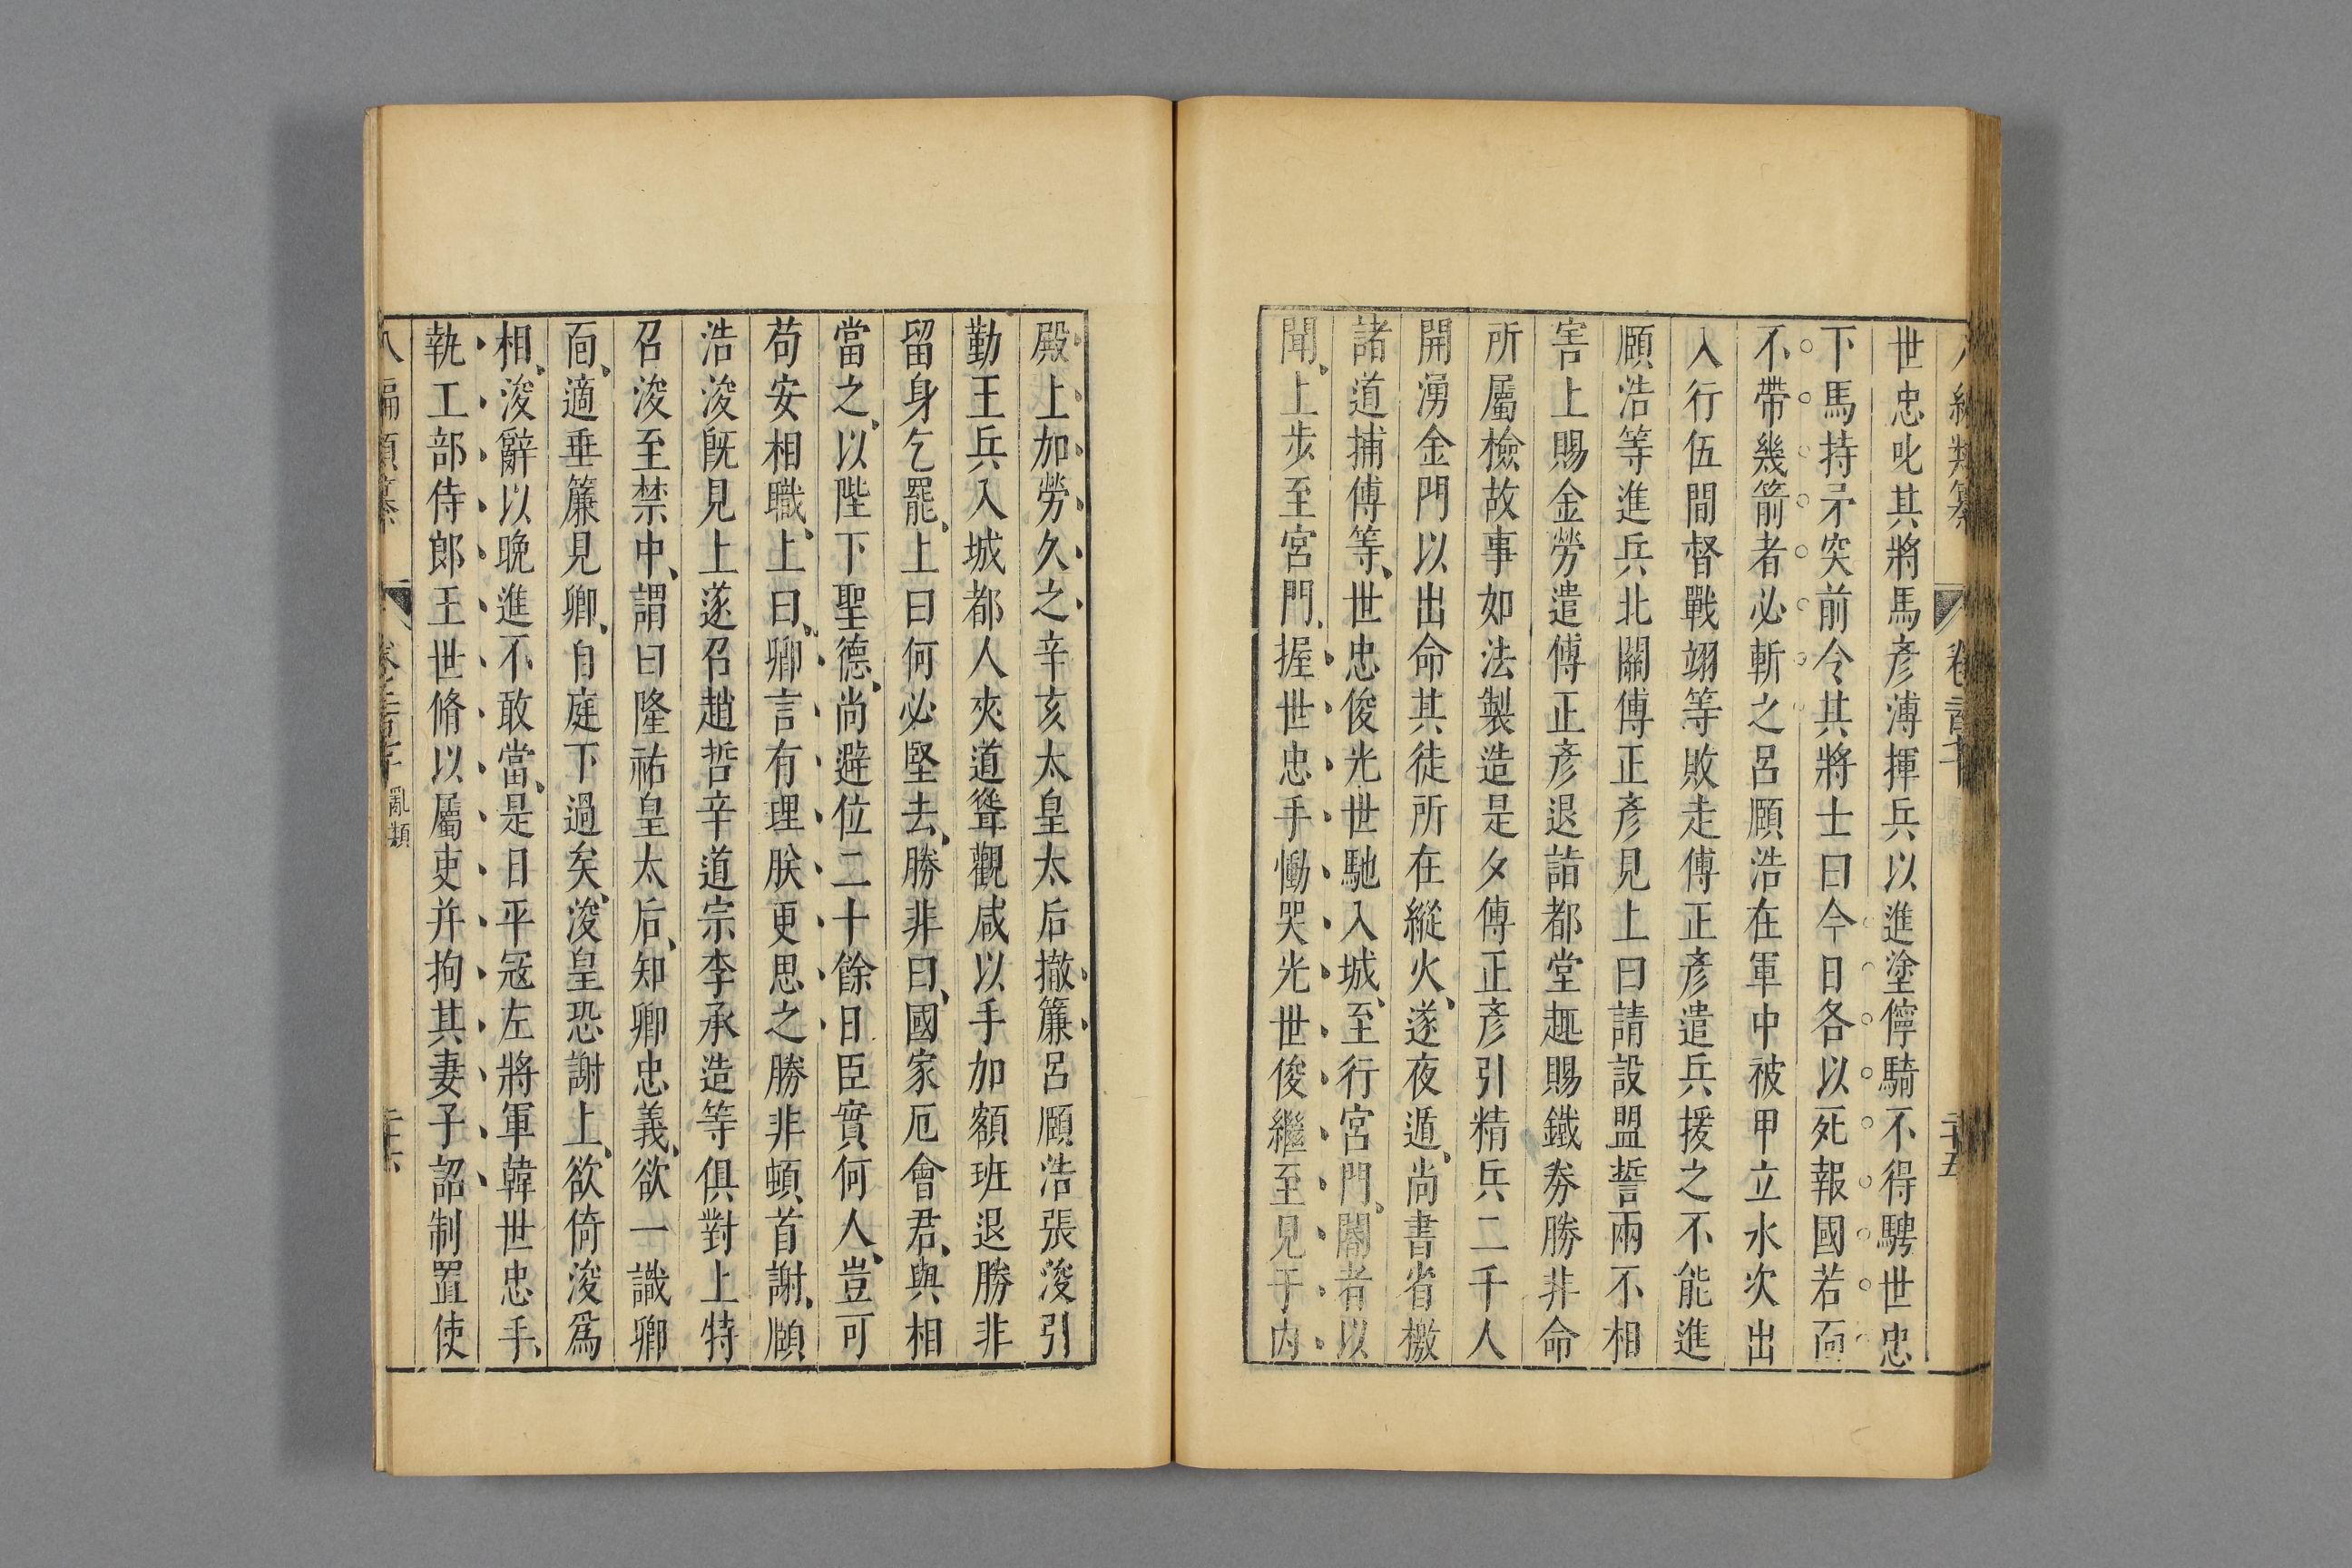 世忠叱其將馬彥溥揮兵以進塗儜騎不得騁世忠
下馬持矛突前令其將士曰今日各以死報國若面
不帶幾箭者必斬之呂頤浩在軍中被甲立水次出
入行伍間督戰翊等敗走傅正彥遣兵援之不能進
頤浩等進兵北關傅正彥見上曰請設盟誓兩不相
害上賜金勞遣傅正彥退詣都堂趣賜鐵券勝非命
所屬檢故事如法製造是夕傅正彥引精兵二千人
開湧金門以出命其徒所在縱火、遂夜遁、尚書省檄
諸道捕傅等、世忠俊光世馳入城、至行宮門、閽者以
聞、上步至宮門、握世忠手慟哭光世俊繼至見于內
殿上加勞久之辛亥太皇太后撤簾呂頤浩張浚引
勤王兵入城都人夾道聳觀咸以手加額班退勝非
留身乞罷、上曰何必堅去、勝非曰、國家厄會君、與相
當之、以陛下聖德、尚避位二十餘日臣實何人、豈可
苟安相職、上曰、卿言有理朕更思之勝非頓首謝、頤
浩浚旣見上遂召趙哲辛道宗李承造等俱對上特
召浚至禁中、謂曰隆祐皇太后、知卿忠義、欲一識卿
面、適垂簾見卿、自庭下過矣、浚皇恐謝上、欲倚浚爲
相、浚辭以晚進不敢當、是日平寇左將軍韓世忠手、
執工部侍郎王世脩以屬吏并拘其妻子詔制置使
亂類